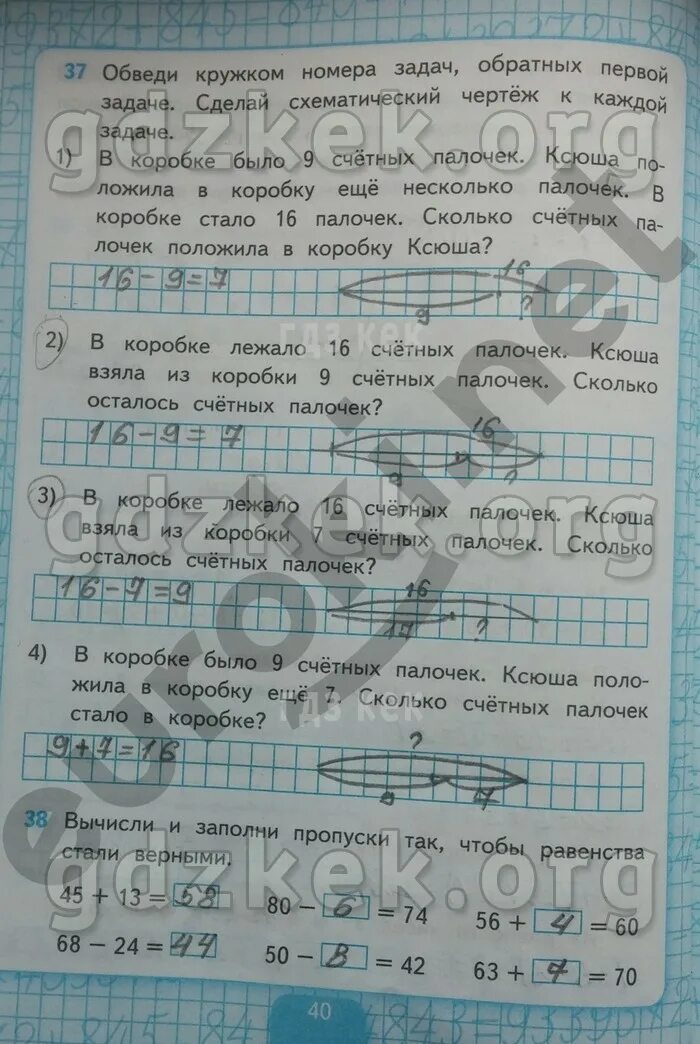 37 Обведи кружком номера задач, обратных первой
задаче. Сделай схематический чертёж к каждой
задаче.
1) В коробке было 9 счётных палочек. Ксюша по-
ложила в коробку ещё несколько палочек. В
коробке стало 16 палочек. Сколько счётных па-
лочек положила в коробку Ксюша?
16 - 9 = 7
16
9 ?
2) В коробке лежало 16 счётных палочек. Ксюша
взяла из коробки 9 счётных палочек. Сколько
осталось счётных палочек?
16 - 9 = 7
16
9 ?
3) В коробке лежало 16 счётных палочек. Ксюша
взяла из коробки 7 счётных палочек. Сколько
осталось счётных палочек?
16 - 7 = 9
16
17 ?
4) В коробке было 9 счётных палочек. Ксюша поло-
жила в коробку ещё 7. Сколько счётных палочек
стало в коробке?
9 + 7 = 16
?
9 7
38 Вычисли и заполни пропуски так, чтобы равенства
стали верными.
45 + 13 = 58 80 - 6 = 74 56 + 4 = 60
68 - 24 = 44 50 - 8 = 42 63 + 7 = 70
40
gdzkek.org
гдз кек
gdzkek.org
гдз кек
gdzkek.org
euroki.net